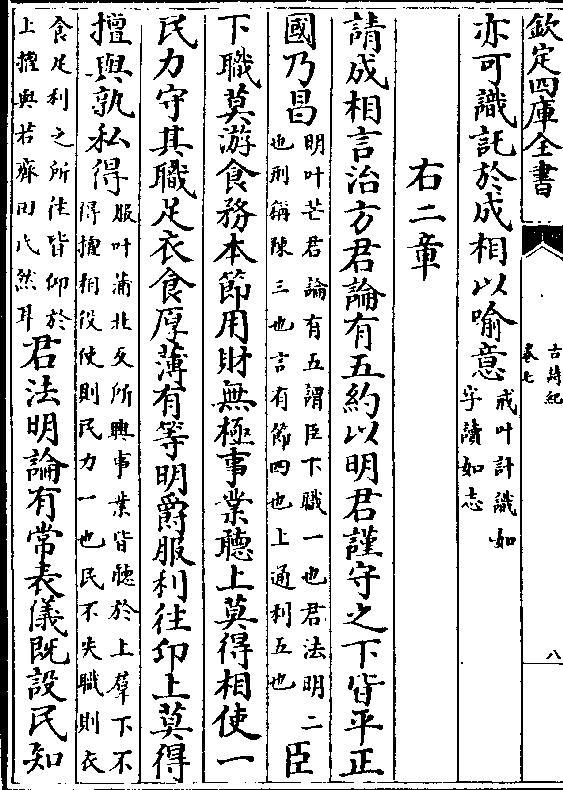 欽定四庫全書
古詩紀
卷七
八
亦可識託於成相以喻意
戒叶計識如
字讀如志
右二章
請成相言治方君論有五約以明君謹守之下皆平正
國乃昌
明叶芒君論有五謂臣下職一也君法明二
也刑稱陳三也言有節四也上通利五也
臣
下職莫游食務本節用財無極事業聽上莫得相使一
民力守其職足衣食厚薄有等明爵服利往卬上莫得
擅與孰私得
服叶蒲北反所興事業皆聽於上羣下不
得擅相役使則民力一也民不失職則衣
食足利之所往皆仰於
上擅與若齊田氏然耳
君法明論有常表儀既設民知